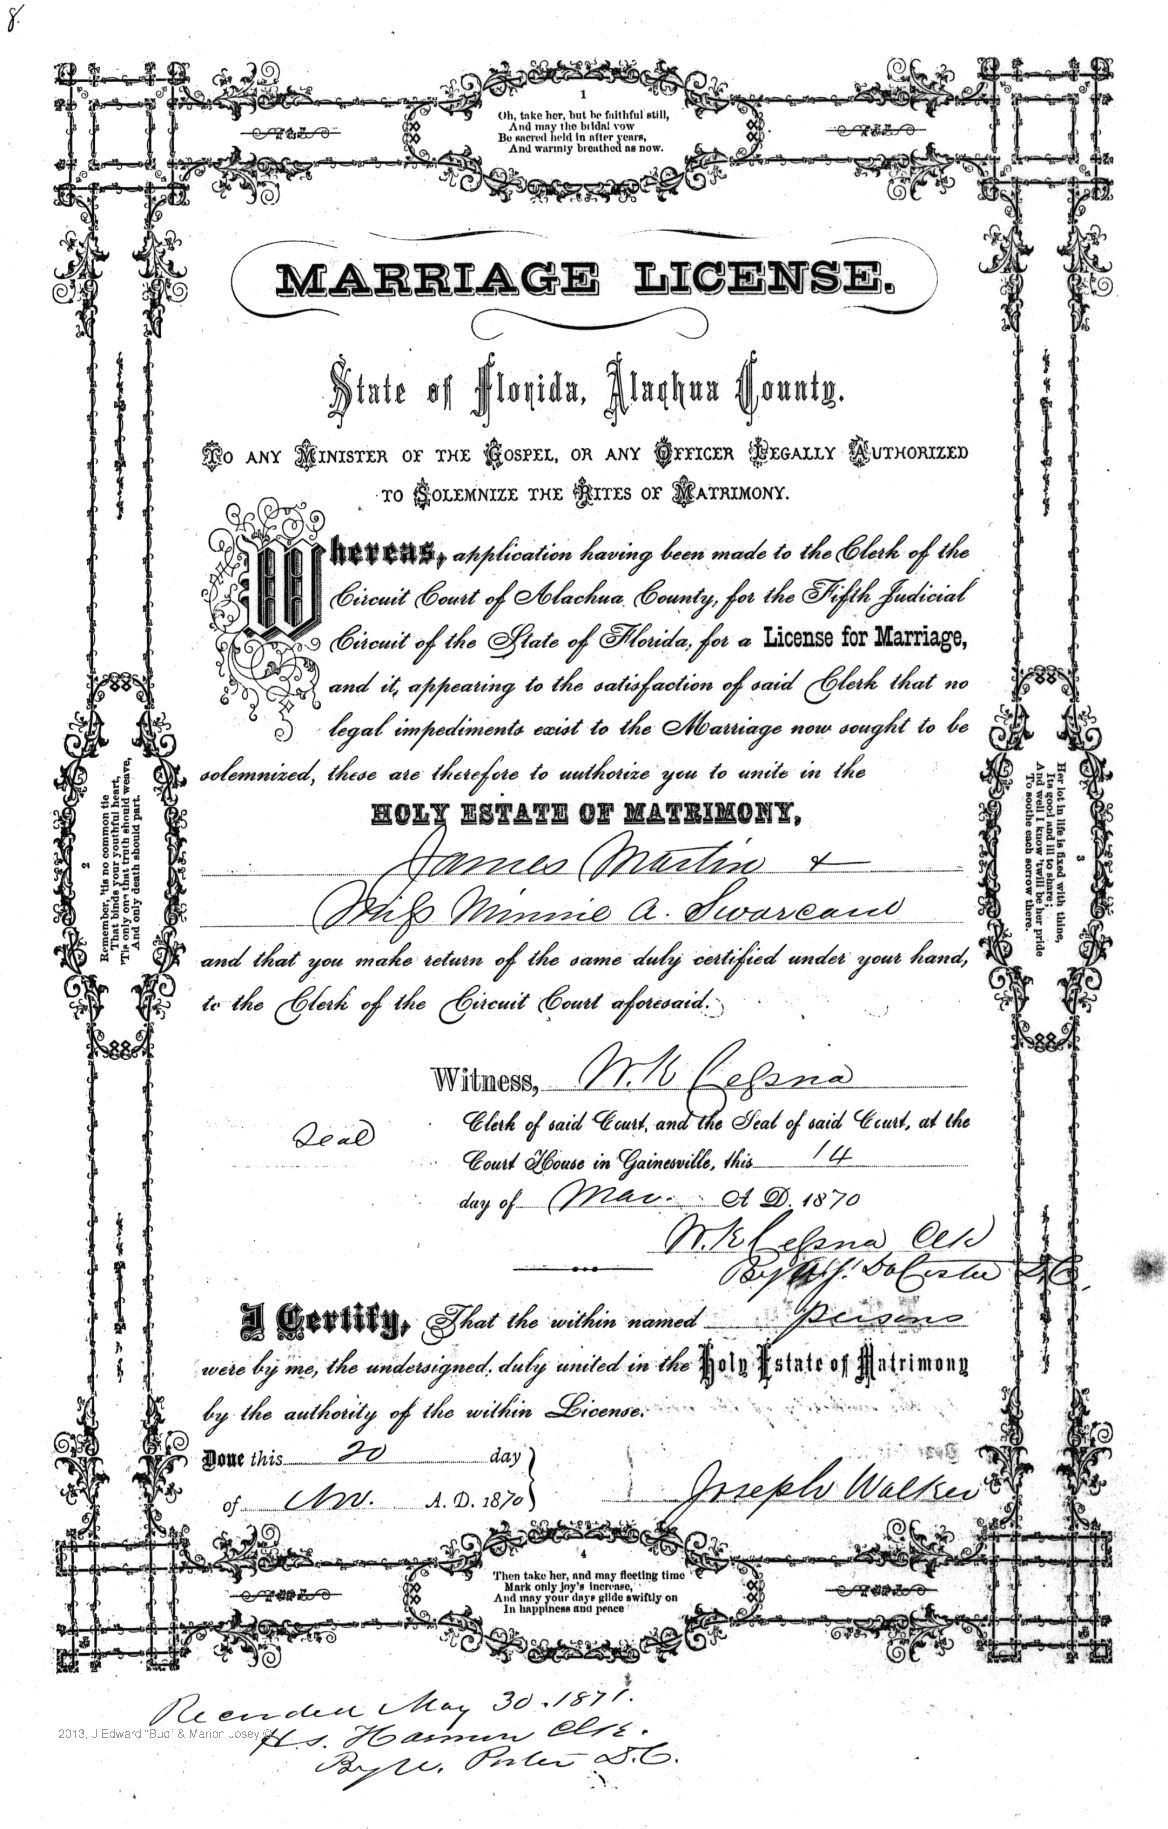 8.
1
Oh, take her, but be faithful still,
And may the bridal vow
Be sacred held in after years,
And warmly breathed as now.
MARRIAGE LICENSE.
State of Florida, Alachua County.
TO ANY MINISTER OF THE GOSPEL, OR ANY OFFICER LEGALLY AUTHORIZED
TO SOLEMNIZE THE RITES OF MATRIMONY.
Whereas, application having been made to the Clerk of the
Circuit Court of Alachua County, for the Fifth Judicial
Circuit of the State of Florida, for a License for Marriage,
and it, appearing to the satisfaction of said Clerk that no
legal impediments exist to the Marriage now sought to be
solemnized, these are therefore to authorize you to unite in the
HOLY ESTATE OF MATRIMONY,
James Martin &
Miss Minnie A.
and that you make return of the same duly certified under your hand,
to the Clerk of the Circuit Court aforesaid.
2
Remember, 'tis no common tie
That binds your youthful heart,
'Tis only one that truth should weave,
And only death should part.
3
Her lot in life is fixed with thine,
Its good and ill to share;
And well I know 'twill be her pride
To soothe each sorrow there.
Witness, W. K. Cessna
Seal
Clerk of said Court, and the Seal of said Court, at the
Court House in Gainesville, this 14
day of Mar. A D. 1870
W. K. Cessna Clk
By D.C.
I Certify, That the within named persons
were by me, the undersigned, duly united in the Holy Estate of Matrimony
by the authority of the within License.
Done this 20 day
of Nov. A. D. 1870
Joseph Walker
4
Then take her, and may fleeting time
Mark only joy's increase,
And may your days glide swiftly on
In happiness and peace
Recorded May 30. 1871.
2013, J Edward "Bud" & Marion Josey ©
H. S. Harmon Clk.
By W. Porter D.C.